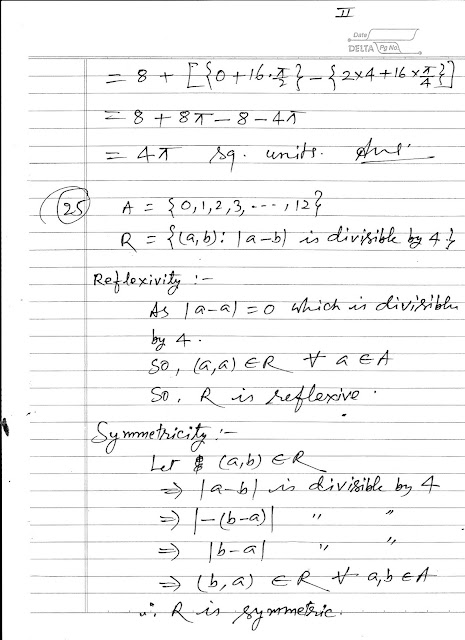 II
Date
DELTA Pg No.
= 8 + [{0+16·π/2} – {2×4+16×π/4}]
= 8 + 8π – 8 – 4π
= 4π sq. units. Ans.
25 A = {0,1,2,3,----,12}
R = {(a,b): |a-b| is divisible by 4}
Reflexivity :-
As |a-a| = 0 which is divisible
by 4.
So, (a,a) ∈ R ∀ a ∈ A
So, R is reflexive.
Symmetricity :-
Let (a,b) ∈ R
⇒ |a-b| is divisible by 4
⇒ |-(b-a)| " "
⇒ |b-a| " "
⇒ (b,a) ∈ R ∀ a,b ∈ A
∴ R is symmetric.